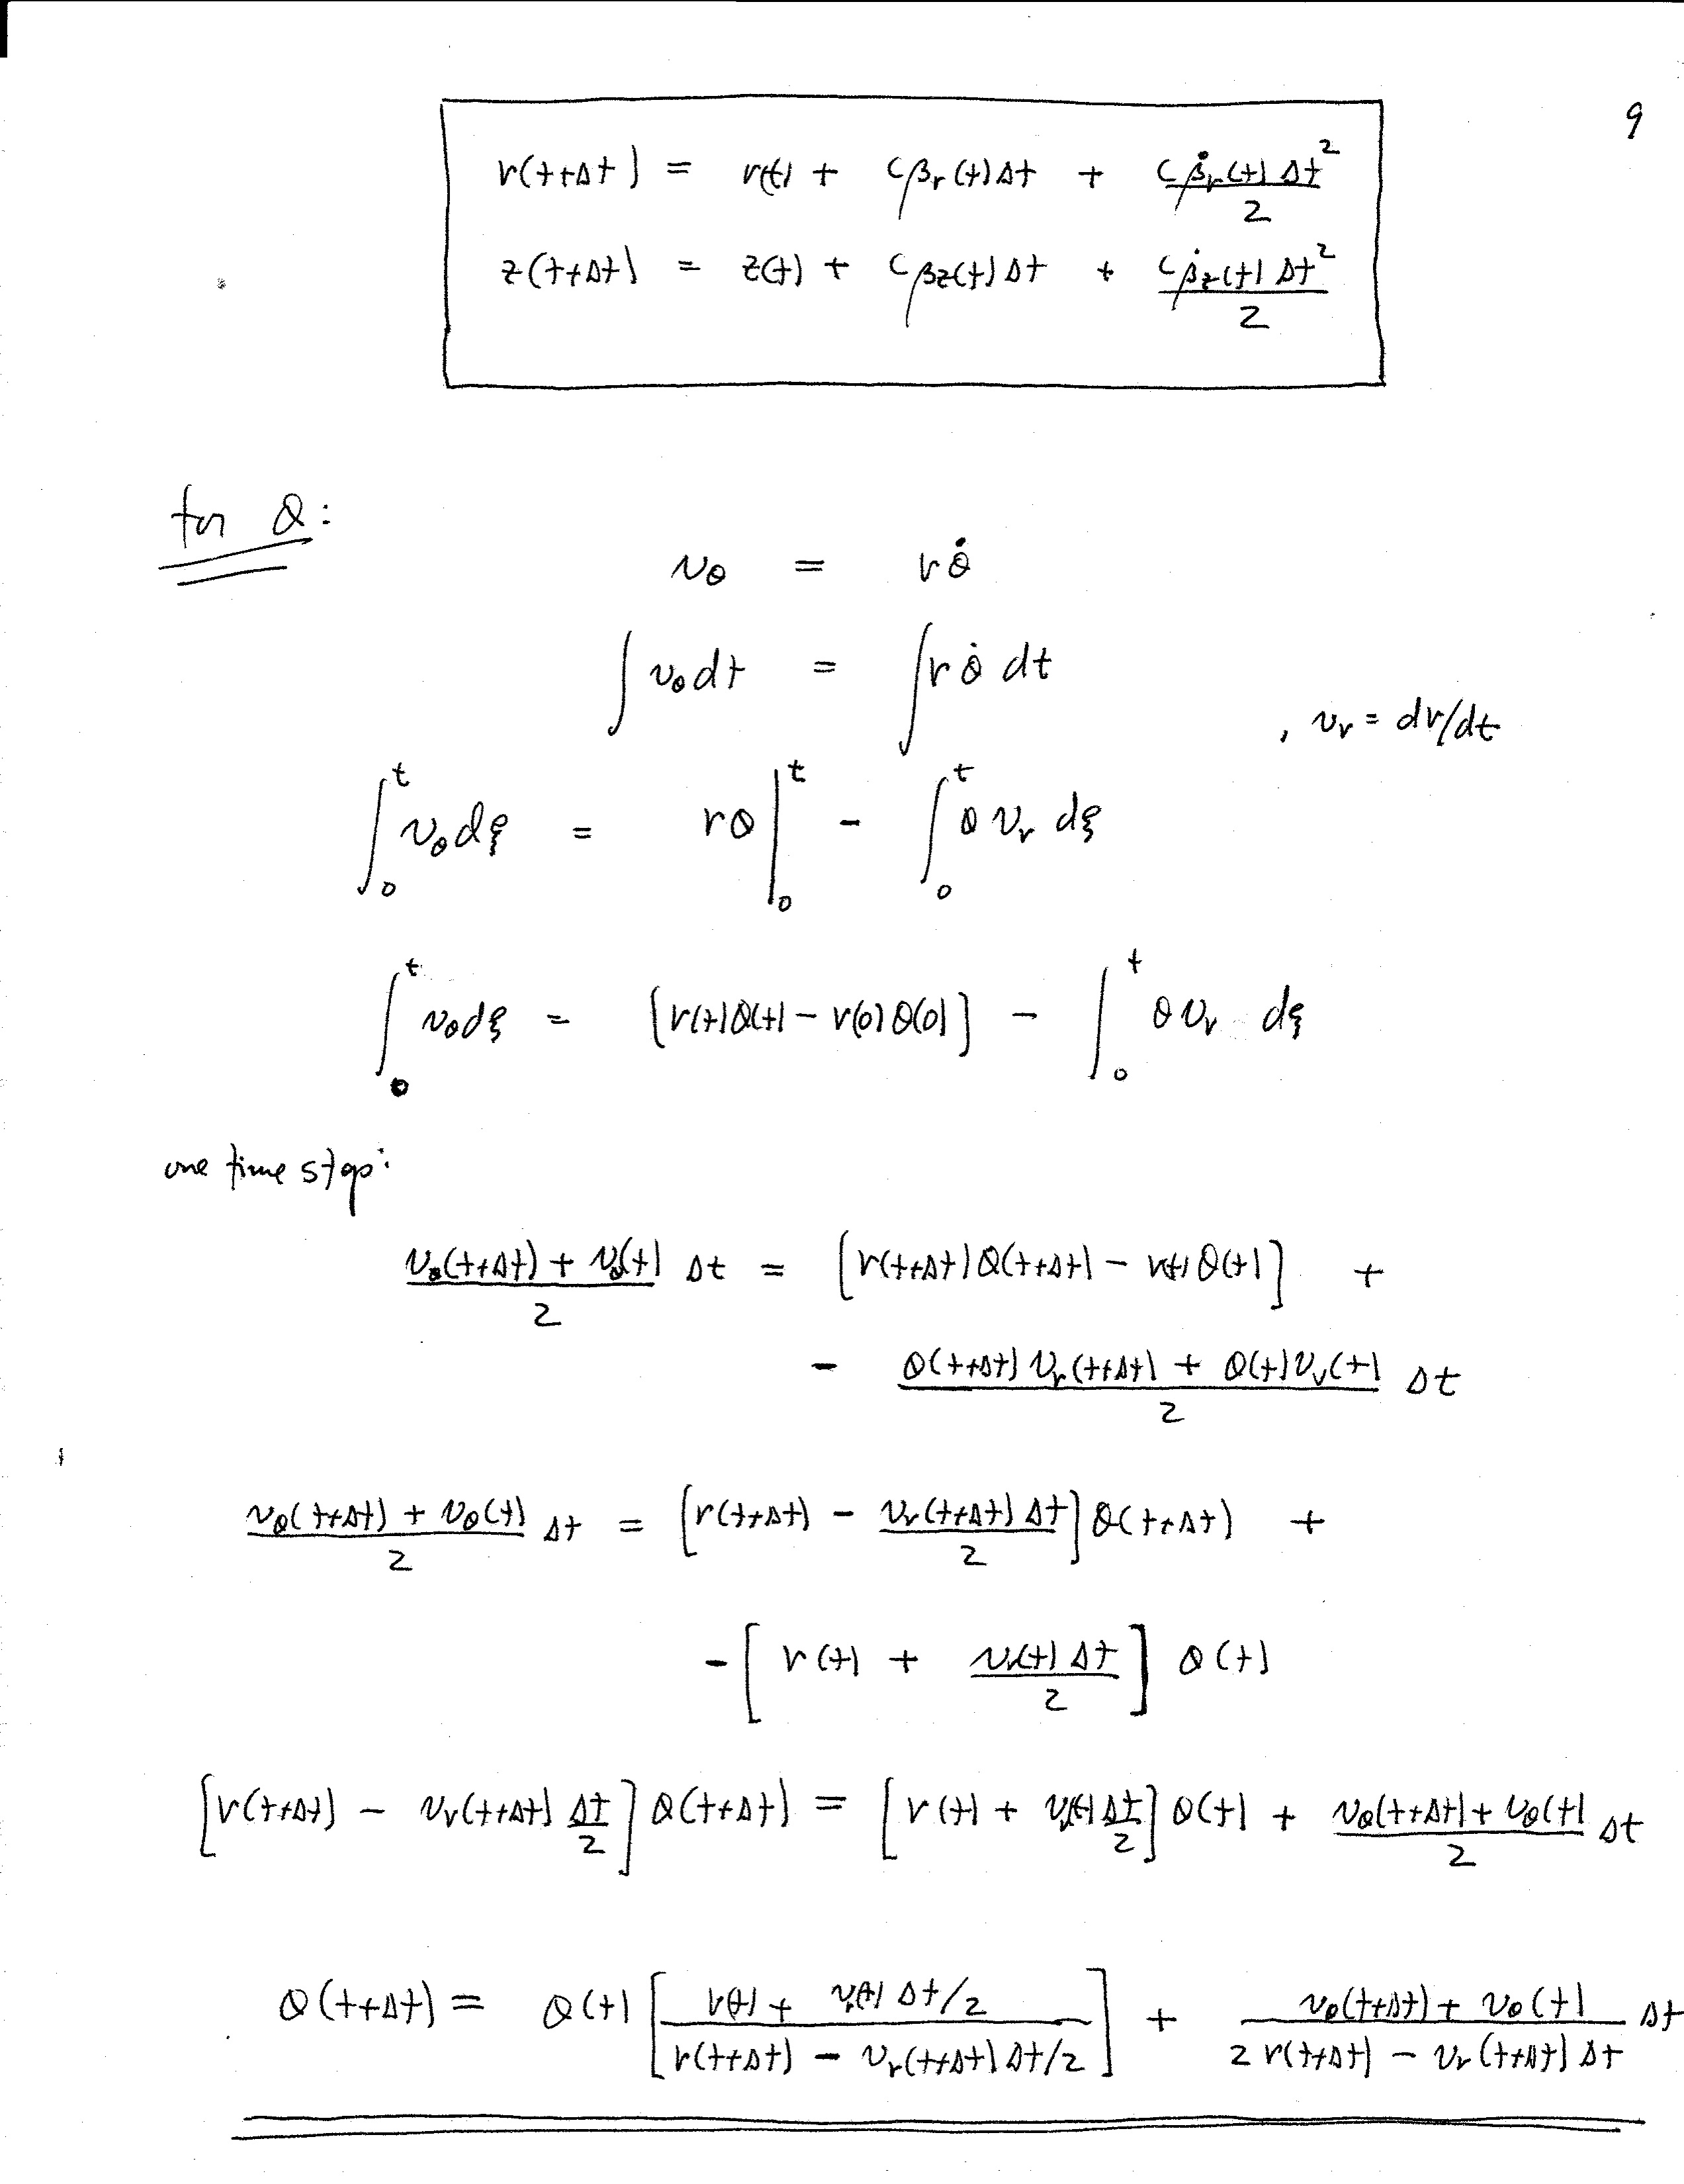 9
r(t+Δt) = r(t) + cβ_r(t)Δt + cβ̇_r(t)Δt²/2
z(t+Δt) = z(t) + cβ_z(t)Δt + cβ̇_z(t)Δt²/2
for θ:
v_θ = rθ̇
∫ v_θ dt = ∫ rθ̇ dt
, v_r = dr/dt
∫₀ᵗ v_θ dξ = rθ|₀ᵗ - ∫₀ᵗ θ v_r dξ
∫₀ᵗ v_θ dξ = [r(t)θ(t) - r(0)θ(0)] - ∫₀ᵗ θ v_r dξ
one time step:
(v_θ(t+Δt) + v_θ(t))/2 Δt = [r(t+Δt)θ(t+Δt) - r(t)θ(t)] +
- (θ(t+Δt)v_r(t+Δt) + θ(t)v_r(t))/2 Δt
(v_θ(t+Δt) + v_θ(t))/2 Δt = [r(t+Δt) - v_r(t+Δt)Δt/2]θ(t+Δt) +
- [r(t) + v_r(t)Δt/2] θ(t)
[r(t+Δt) - v_r(t+Δt) Δt/2] θ(t+Δt) = [r(t) + v_r(t) Δt/2] θ(t) + (v_θ(t+Δt) + v_θ(t))/2 Δt
θ(t+Δt) = θ(t) [(r(t) + v_r(t)Δt/2)/(r(t+Δt) - v_r(t+Δt)Δt/2)] + (v_θ(t+Δt) + v_θ(t))/(2r(t+Δt) - v_r(t+Δt)Δt) Δt